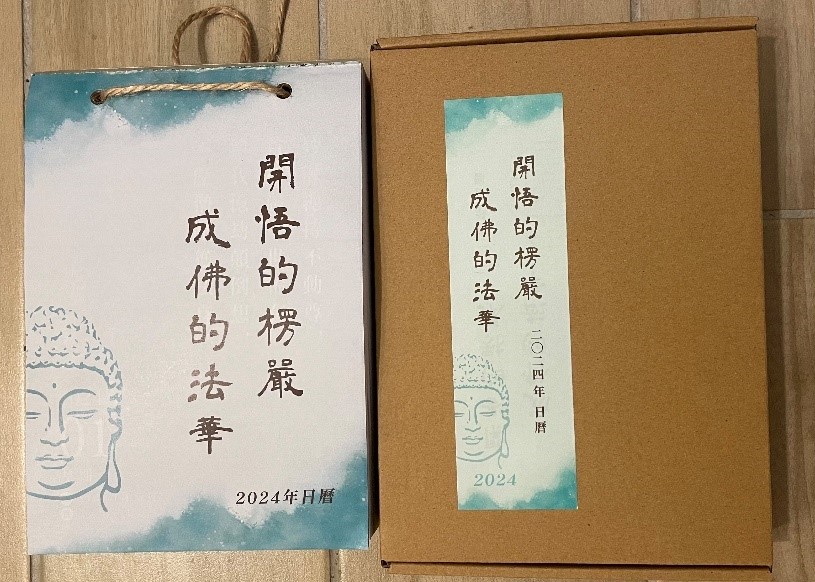 開悟的楞嚴
成佛的法華
2024年日曆
開悟的楞嚴
成佛的法華
二〇二四年 日曆
2024